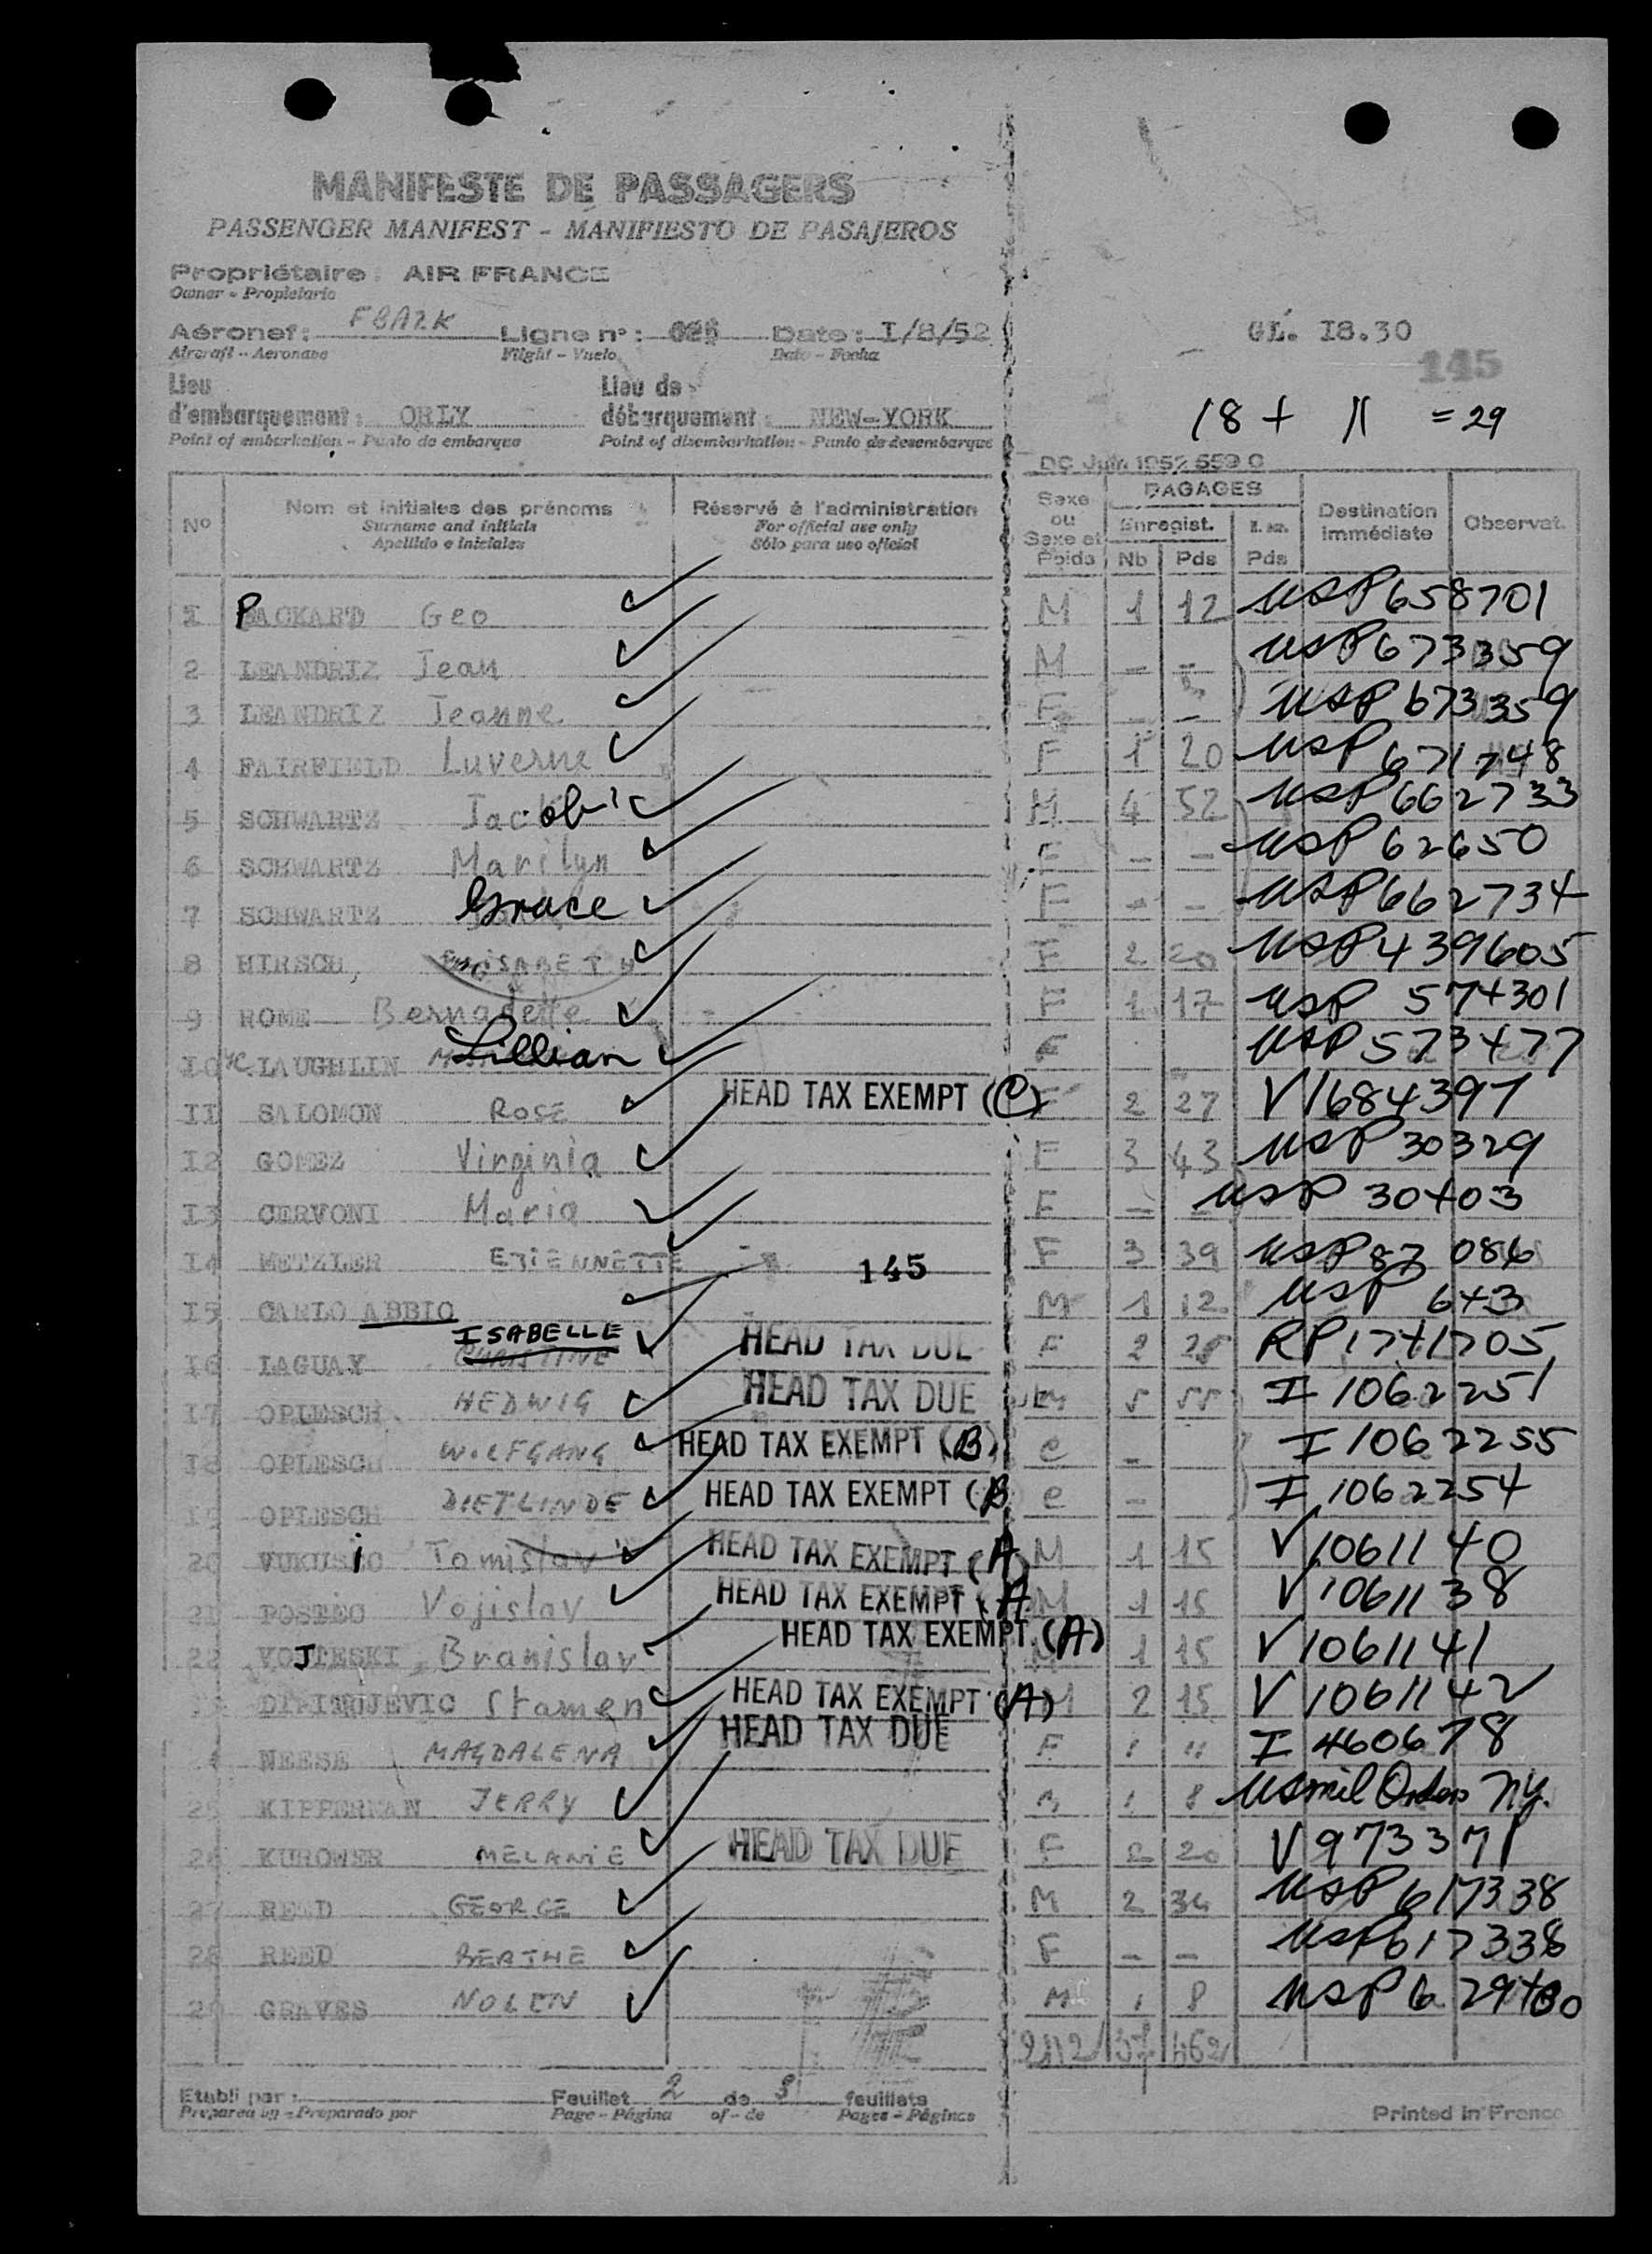 MANIFESTE DE PASSAGERS
PASSENGER MANIFEST - MANIFIESTO DE PASAJEROS
Propriétaire : AIR FRANCE
Owner - Propietario
Aéronef : FBAZK Ligne n° : Date : I/8/52
Aircraft - Aeronave Flight - Vuelo Date - Fecha
GL. I8.30
145
Lieu d'embarquement : ORLY Lieu de débarquement : NEW-YORK
Point of embarkation - Punto de embarque Point of disembarkation - Punto de desembarque
18 + 11 = 29
DC Juin 1952 559 0
N° Nom et initiales des prénoms Réservé à l'administration Sexe ou Sexe et Poids BAGAGES Destination immédiate Observat.
Surname and initials For official use only Enregist.
Apellido e iniciales Sólo para uso oficial Nb Pds Pds
I PACKARD Geo M 1 12 USP 658701
2 LEANDRIZ Jean M - - USP 673359
3 LEANDRIZ Jeanne F - - USP 673359
4 FAIRFIELD Luverne F 1 20 USP 671748
5 SCHWARTZ Jac M 4 52 USP 662733
6 SCHWARTZ Marilyn F - - USP 62650
7 SCHWARTZ Grace F - - USP 662734
8 HIRSCH, F 2 20 USP 439605
9 ROME Bernadette F 1 17 USP 574301
I0 Mc LAUGHLIN Lillian F USP 573477
II SALOMON ROSE HEAD TAX EXEMPT (C) F 2 27 V 1684397
I2 GOMEZ Virginia F 3 43 USP 30329
I3 CERVONI Maria F - - USP 30403
I4 METZLER ETIENNETTE F 3 39 USP 87 086
145
I5 CARLO ABBIO M 1 12 USP 643
I6 LAGUAY CHRISTINE ISABELLE HEAD TAX DUE F 2 RP 1741705
I7 OPLESCH HEDWIG HEAD TAX DUE 5 55 I 1062251
I8 OPLESCH WOLFGANG HEAD TAX EXEMPT (B) e - I 1062255
I9 OPLESCH DIETLINDE HEAD TAX EXEMPT (B e - I 1062254
20 Tomislav HEAD TAX EXEMPT (A) M 1 15 V 1061140
21 POSTEC Vojislav HEAD TAX EXEMPT (A M 1 15 V 1061138
22 Branislav HEAD TAX EXEMPT (A) M 1 15 V 1061141
Stamen HEAD TAX EXEMPT (A) M 2 15 V 1061142
24 NEESE MAGDALENA HEAD TAX DUE F 1 11 I 460678
25 KIPPERMAN JERRY 1 8 US mil Orders NY.
26 KUROWER MELANIE HEAD TAX DUE F 2 20 V 973371
27 REED GEORGE M 2 34 USP 617338
28 REED BERTHE F - - USP 617338
29 GRAVES NOLEN M 1 8
37 462
Etabli par : Feuillet 2 de 3 feuillets
Prepared by - Preparado por Page - Página of - de Pages - Páginas
Printed in France